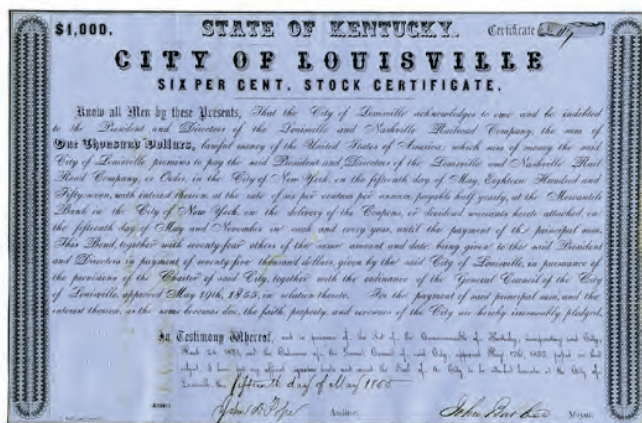 $1,000. STATE OF KENTUCKY. Certificate
CITY OF LOUISVILLE
SIX PER CENT. STOCK CERTIFICATE.
Know all Men by these Presents, That the City of Louisville acknowledges to owe and be indebted
to the President and Directors of the Louisville and Nashville Railroad Company, the sum of
One Thousand Dollars, lawful money of the United States of America; which sum of money the said
City of Louisville promises to pay the said President and Directors of the Louisville and Nashville Rail
Road Company, or Order, in the City of New York, on the fifteenth day of May, Eighteen Hundred and
Fifty-seven, with interest thereon, at the rate of six per centum per annum, payable half yearly, at the Mercantile
Bank in the City of New York, on the delivery of the Coupons, or dividend warrants hereto attached, on
the fifteenth day of May and November in each and every year, until the payment of the principal sum.
This Bond, together with seventy-four others of the same amount and date, being given to the said President
and Directors in payment of seventy-five thousand dollars, given by the said City of Louisville, in pursuance of
the provisions of the Charter of said City, together with the ordinance of the General Council of the City
of Louisville, approved May 19th, 1855, in relation thereto. For the payment of said principal sum, and the
interest thereon, as the same becomes due, the faith, property, and revenues of the City are hereby irrevocably pledged.
In Testimony Whereof, and in pursuance of the Act of the Commonwealth of Kentucky, incorporating said City,
March 24, 1851, and the Ordinance of the General Council of said City, approved May 19th, 1855, passed on that
subject, I have put my official signature hereto and caused the Seal of the City to be attached hereto in the City of
Louisville, this fifteenth day of May 1855
Attest: John B. Pope Auditor. John Barbee Mayor.